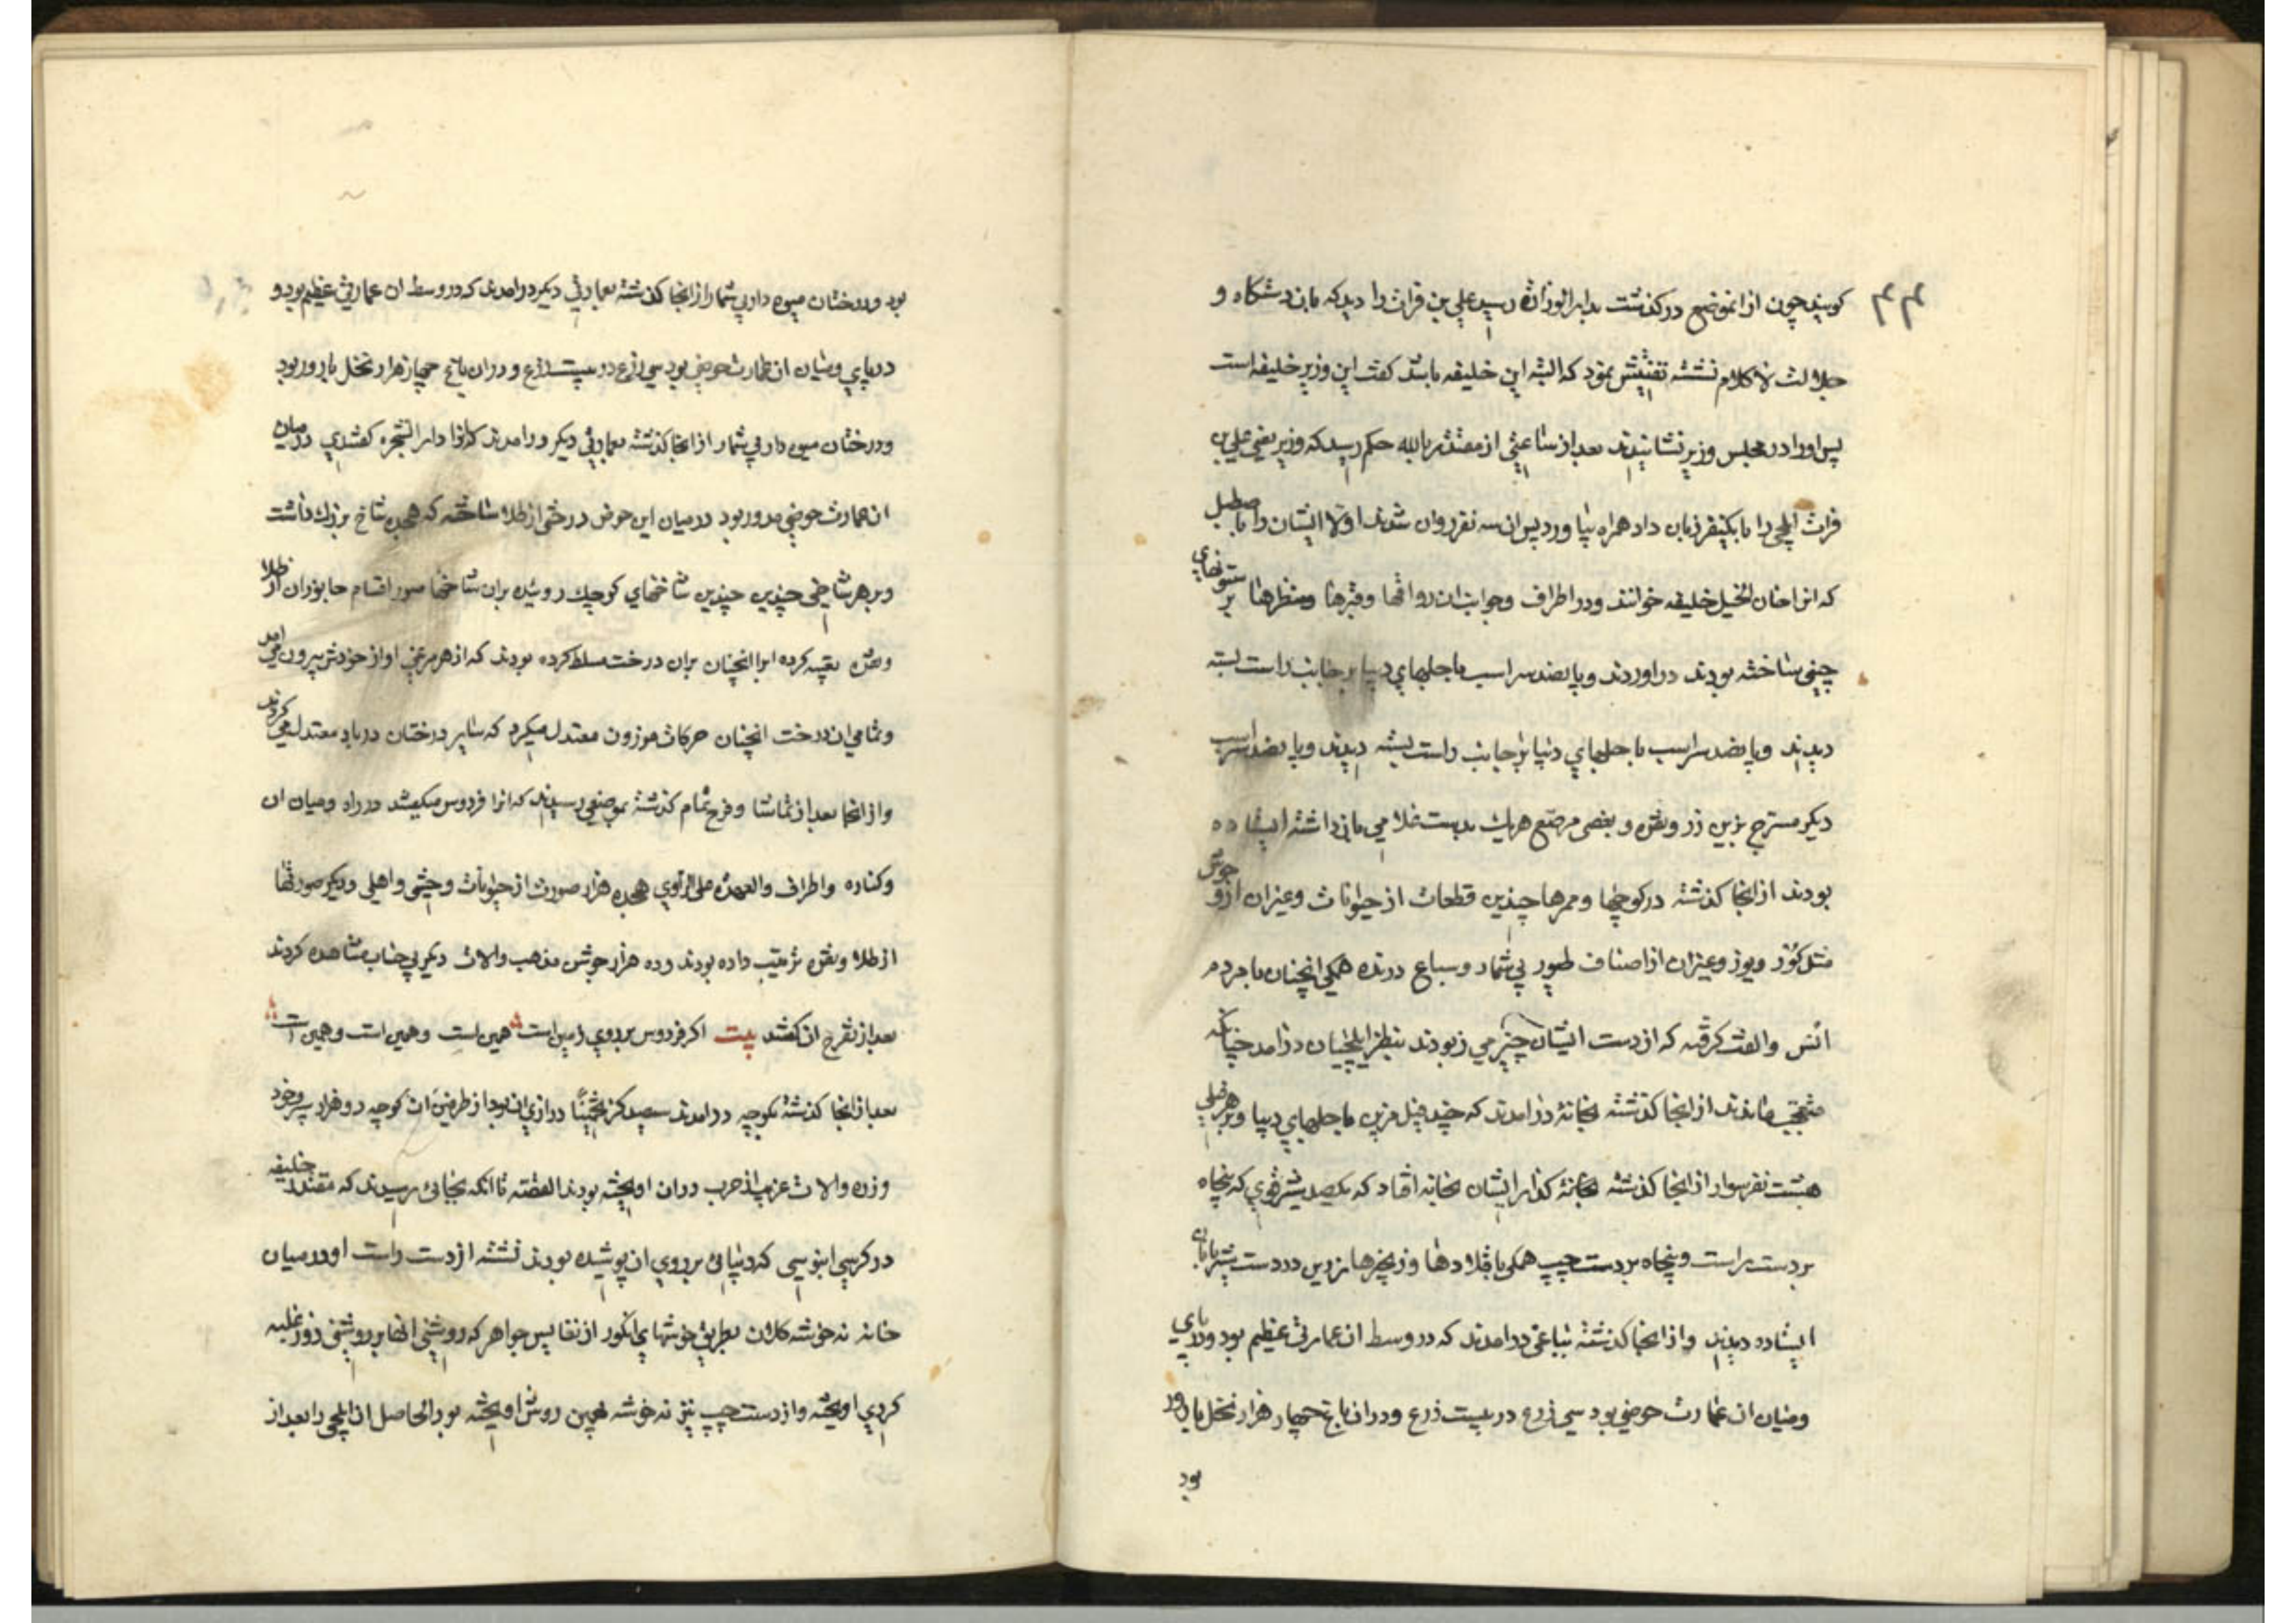 ۴۴
کویند چون ازانموضع درکذشت بدار الوزاره رسید علي بن فرات را دید که بان دستکاه و
جلالت لاکلام نشسته تفتیش نمود که البته این خلیفه باشد کفت این وزیر خلیفه است
پس اورا در مجلس وزیر نشانیدند بعد از ساعتي از مقتدر بالله حکم رسید که وزیر یعني علي بن
فرات ایلچي را با یکنفر زبان داد همراه بیاورد پس ان سه نفر روان شدند اولا ایشان را باصطبل
که انرا خان الخیل خلیفه خوانند ودر اطراف وجوانب ان رواقها وقبرها ومنظرها بر ستونهاي
چیني ساخته بودند دراوردند وپانصد سر اسب با جلهاي دیبا بر جانب راست بسته
دیدند وپانصد سر اسب با جلهاي دیبا بر جانب راست بسته دیدند وپانصد سر اسب
دیکر مسترج بزین زر ونقره وبعضي مرصع هریك بدست غلامي بازداشته ایستاده
بودند ازانجا کذشته درکوچها وممرها چندین قطعات از حیوانات وغیران ازوحوش
مثل کوزن ویوز وغیران ازاصناف طیور بي شمار وسباع درنده همکي انچنان با مردم
انس والفت کرفته که از دست ایشان چیز مي ربودند بنظر ایلچیان درامد چنانکه
متعجب ماندند ازانجا کذشته بخانهٔ درامدند که چند فیل مزین با جلهاي دیبا وبر هر فیلي
هشت نفر سوار ازانجا کذشته بخانهٔ کذار ایشان بخانه افتاد که یکصد شیر قوي که پنجاه
بر دست راست وپنجاه بر دست چپ همکي با قلادها وزنجیرها زرین در دست شیربانان
ایستاده دیدند وازانجا کذشته بباغي درامدند که در وسط ان عمارتي عظیم بود ودرپاي
ومیان ان عمارت حوضي بود سي ذرع در بیست ذرع ودران باغ چهار هزار نخل بارور
بود
بود ودرختان میوه دار بي شمار ازانجا کذشته بعمارتي دیکر درامدند که در وسط ان عمارتي عظیم بود و
درپاي ومیان ان عمارت حوضي بود سي ذرع در بیست ذرع ودران باغ چهار هزار نخل بارور بود
ودرختان میوه دار بي شمار ازانجا کذشته بعمارتي دیکر درامدند که انرا دار الشجره کفتندي درمیان
ان عمارت حوضي مدور بود درمیان این حوض درختي از طلا ساخته که هجده شاخ بزرك داشت
وبر هر شاخي چندین چندین شاخهاي کوچك روئیده بران شاخها صور اقسام جانوران از طلا
ونقره تعبیه کرده ابرا انچنان بران درخت مسلط کرده بودند که از هر مرغي اواز خودش بیرون مي امد
وتمامي ان درخت انچنان حرکات موزون معتدل میکرد که سایر درختان درباد معتدل مي کردند
وازانجا بعد از تماشا وفرح تمام کذشته بموضعي رسیدند که انرا فردوس میکفتند در راه ومیان ان
وکناره واطراف والعهدة علي الراوي هجده هزار صورت از حیوانات وحشي واهلي ودیکر صورتها
از طلا ونقره ترتیب داده بودند وده هزار جوشن مذهب والات دیکر بي حساب مشاهده کردند
بعد از تفرج ان کفتند بیت اکر فردوس بر روي زمین است همین است وهمین است وهمین است
بعد ازانجا کذشته بکوچه درامدند سیصد کز تخمینًا درازي ان بود از طرفین ان کوچه دو هزار سپر وخود
وزره والات غریبه از حرب دران اویخته بودند القصه تا انکه بجائي رسیدند که مقتدر خلیفه
درکرسي ابنوسي که دیبائي بر روي ان پوشیده بودند نشسته از دست راست او درمیان
خانه نه خوشه کلان بطریق خوشهاي انکور از نفایس جواهر که روشني انها بر روشني روز غلبه
کردي اویخته واز دست چپ نیز نه خوشه بهمین روش اویخته بود الحاصل ان ایلچي را بعد از